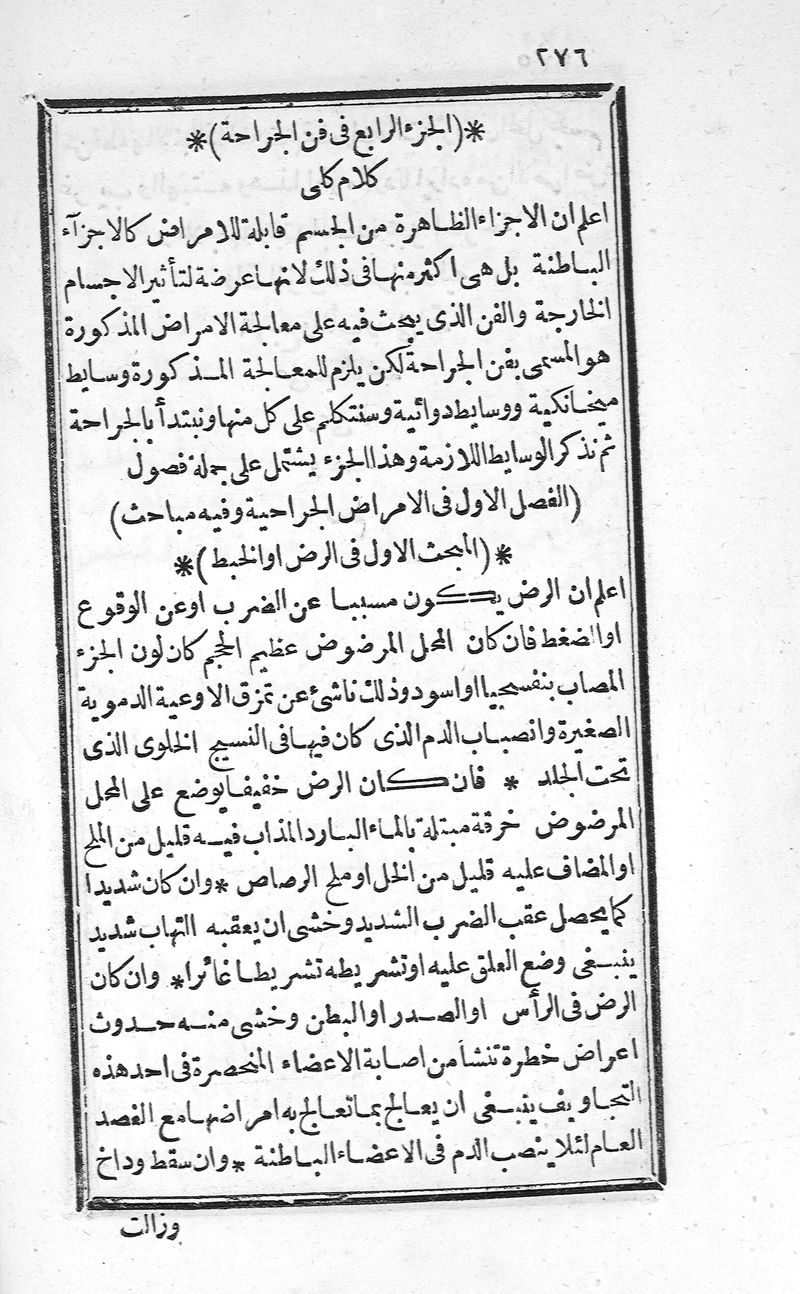 ٢٧٦
*(الجزء الرابع فى فن الجراحة)*
كلام كلى
اعلم ان الاجزاء الظاهرة من الجسم قابلة للامراض كالاجزآء
الباطنة بل هى اكثر منها فى ذلك لانها عرضة لتأثير الاجسام
الخارجة والفن الذى يبحث فيه على معالجة الامراض المذكورة
هو المسمى بفن الجراحة لكن يلزم للمعالجة المذكورة وسايط
ميخانكية ووسايط دوائية وسنتكلم على كل منها ونبتدأ بالجراحة
ثم نذكر الوسايط اللازمة وهذا الجزء يشتمل على جملة فصول
(الفصل الاول فى الامراض الجراحية وفيه مباحث)
*(المبحث الاول فى الرض اوالخبط)*
اعلم ان الرض يكون مسببا عن الضرب اوعن الوقوع
اوالضغط فان كان المحل المرضوض عظيم الحجم كان لون الجزء
المصاب بنفسجيا اواسود وذلك ناشئ عن تمزق الاوعية الدموية
الصغيرة وانصباب الدم الذى كان فيها فى النسيج الخلوى الذى
تحت الجلد * فان كان الرض خفيفا يوضع على المحل
المرضوض خرقة مبتلة بالماء البارد المذاب فيه قليل من الملح
اوالمضاف عليه قليل من الخل اوملح الرصاص * وان كان شديدا
كما يحصل عقب الضرب الشديد وخشى ان يعقبه التهاب شديد
ينبغى وضع العلق عليه اوتشريطه تشريطا غائرا * وان كان
الرض فى الرأس اوالصدر اوالبطن وخشى منه حدوث
اعراض خطرة تنشأ من اصابة الاعضاء المنحصرة فى احد هذه
التجاويف ينبغى ان يعالج بما تعالج به امراضها مع الفصد
العام لئلا ينصب الدم فى الاعضاء الباطنة * وان سقط وداخ
وزالت